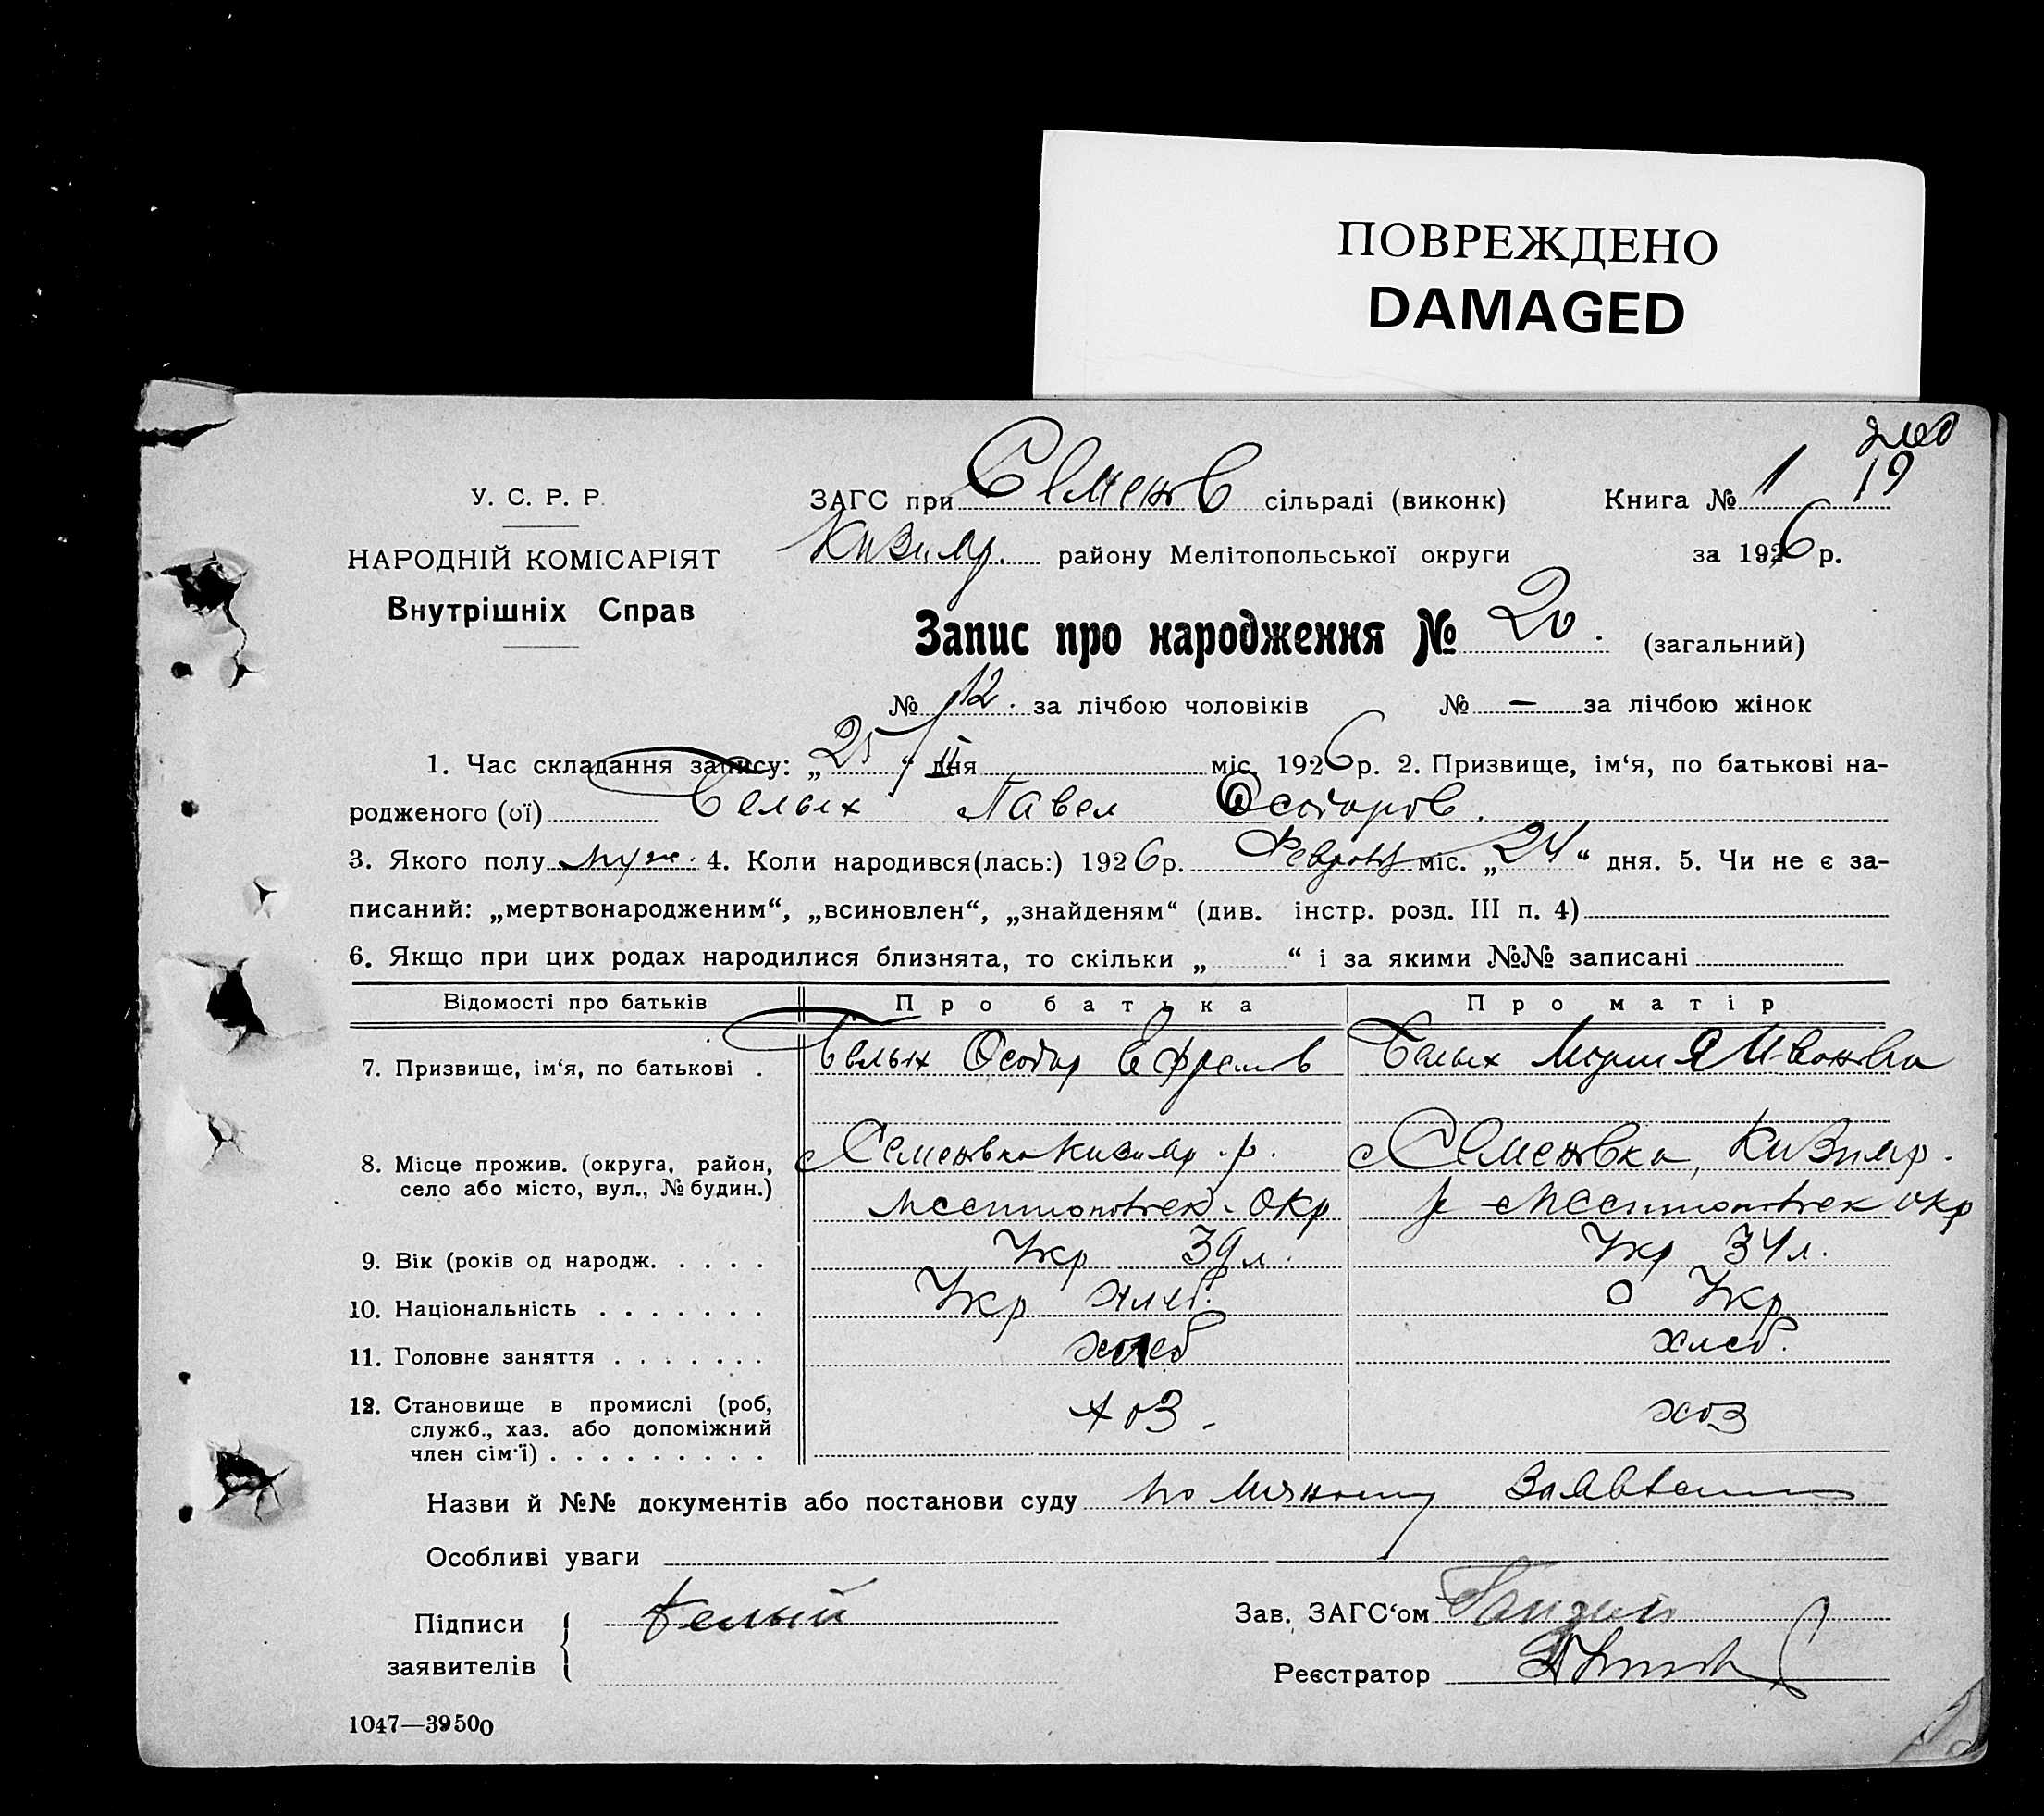 ПОВРЕЖДЕНО
DAMAGED
19
У. С. Р. Р.
ЗАГС при Семенов сільраді (виконк) Книга № 1
НАРОДНІЙ КОМІСАРІЯТ
Кизияр. району Мелітопольської округи за 1926 р.
Внутрішніх Справ
Запис про народження № 20. (загальний)
№ 12. за лічбою чоловіків № — за лічбою жінок
1. Час складання запису: „25“ II дня міс. 1926 р. 2. Призвище, ім‘я, по батькові на-
родженого (ої) Белых Павел Феодоров.
3. Якого полу муж. 4. Коли народився(лась:) 1926 р. Февраля міс. „24“ дня. 5. Чи не є за-
писаний: „мертвонародженим“, „всиновлен“, „знайденям“ (див. інстр. розд. III п. 4)
6. Якщо при цих родах народилися близнята, то скільки „ “ і за якими №№ записані
Відомості про батьків Про батька Про матір
7. Призвище, ім‘я, по батькові . Белых Феодор Ефремов Белых Мария Ивановна
8. Місце прожив. (округа, район, с Семеновка Кизияр. р. с Семеновка, Кизияр.
село або місто, вул., № будин.) Мелитопольск. окр р Мелитопольск окр
9. Вік (років од народж. . . . . Укр 39 л. Укр 34 л.
10. Національність . . . . . . . Укр хлеб. Укр
11. Головне заняття . . . . . . . хлеб хлеб.
12. Становище в промислі (роб, хоз. хоз
служб., хаз. або допоміжний
член сім‘ї) . . . . . . . . .
Назви й №№ документів або постанови суду по личному заявлению
Особливі уваги
Підписи Белый Зав. ЗАГС‘ом
заявителів Реєстратор
1047—39500